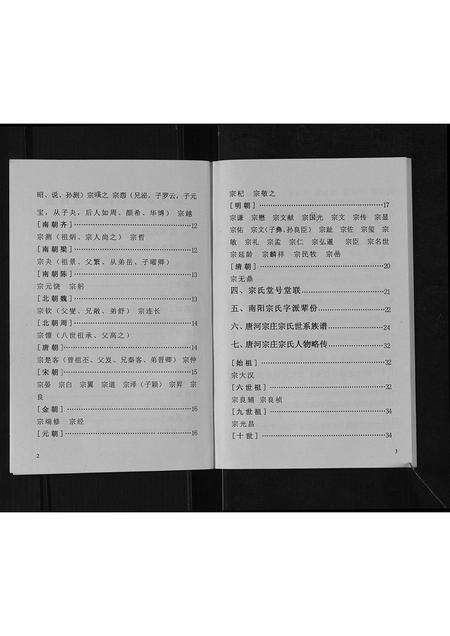 昭、说、孙测）宗㥄之 宗悫（兄泌、子罗云，子元
宝，从子夬，后人如周、颜希、华博）宗越
［南朝齐］ 12
宗测（祖炳、宗人尚之）宗哲
［南朝梁］ 12
宗夬（祖景、父繁、从弟岳、子曜卿）
［南朝陈］ 13
宗元饶 宗躬
［北朝魏］ 13
宗钦（父燮、兄敞、弟舒）宗连长
［北朝周］ 14
宗懔（八世祖承、父高之）
［唐朝］ 14
宗楚客（曾祖丕、父岌、兄秦客、弟晋卿）宗仲
［宋朝］ 15
宗晏 宗白 宗翼 宗道 宗泽（子颖）宗昇 宗
良
［金朝］ 16
宗端修 宗经
［元朝］ 16
2
宗杞 宗敬之
［明朝］ 17
宗谦 宗懋 宗文献 宗国光 宗文 宗传 宗显
宗佑 宗文（子彝，孙良臣）宗趾 宗佐 宗玺 宗
敏 宗礼 宗孟 宗仁 宗弘暹 宗臣 宗名世
宗延龄 宗麟祥 宗民牧 宗岳
［清朝］ 20
宗无鼎
四、宗氏堂号堂联 21
五、南阳宗氏字派辈份 22
六、唐河宗庄宗氏世系族谱 24
七、唐河宗庄宗氏人物略传 32
［始祖］ 32
宗大汉
［六世祖］ 32
宗良辅 宗良祯
［九世祖］ 34
宗光昌
［十世］ 34
3